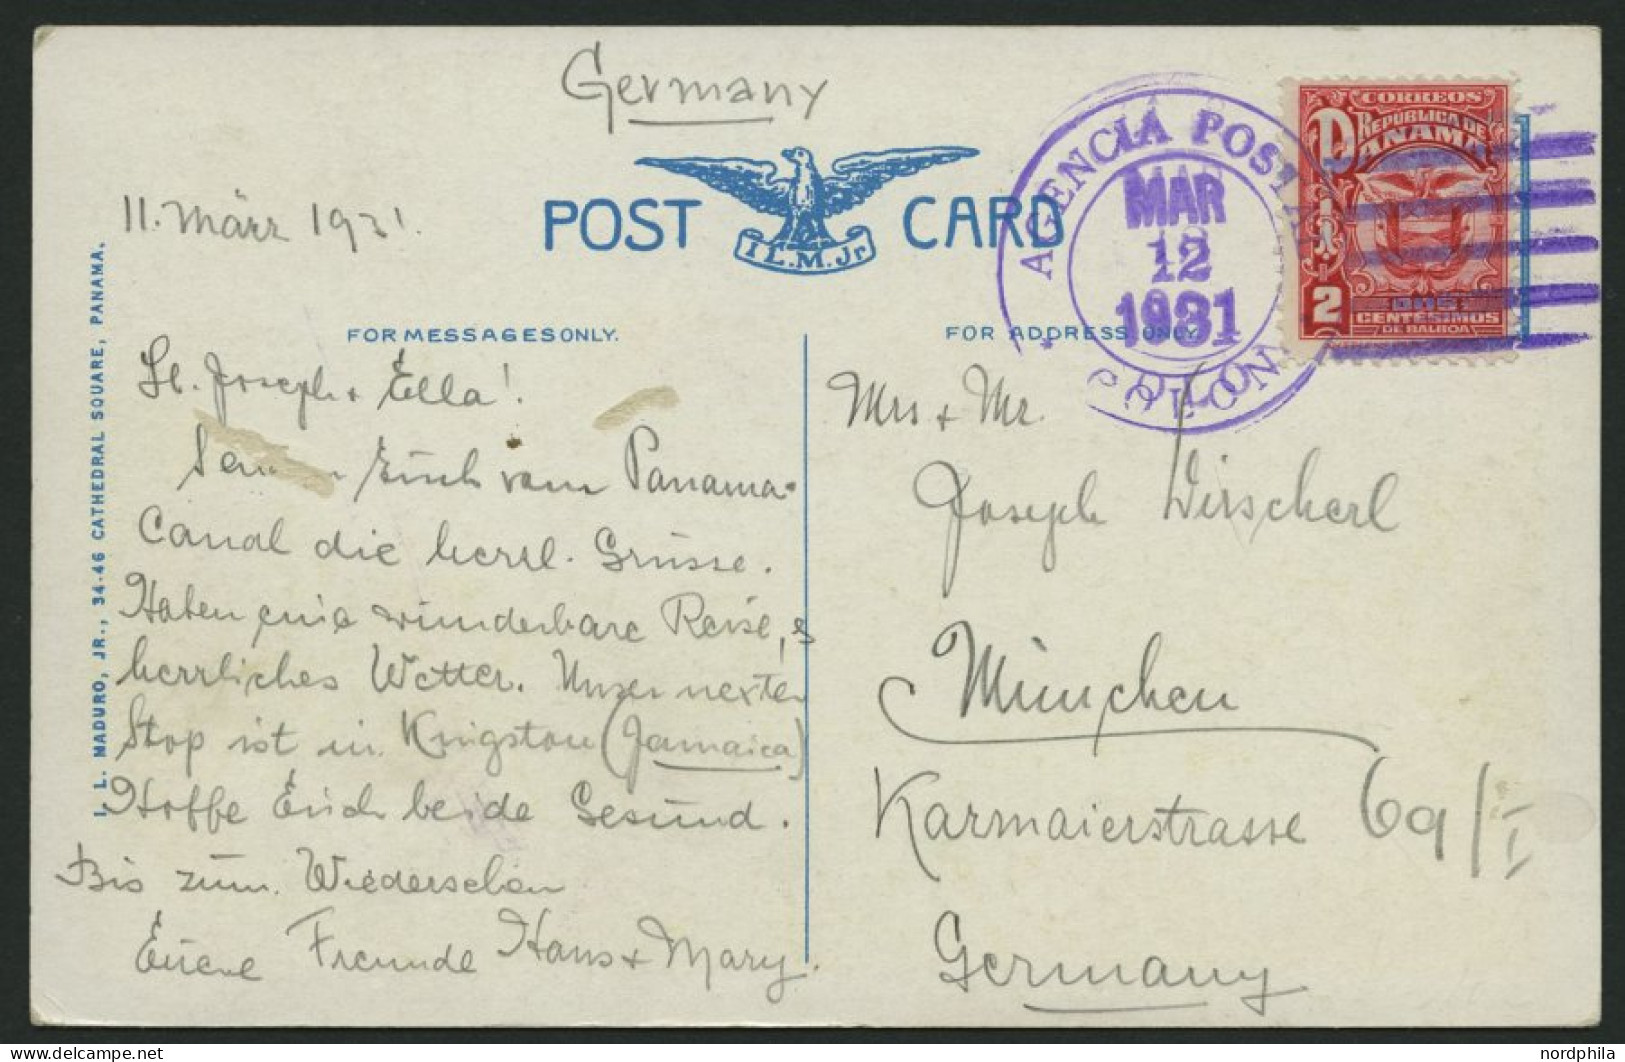 Germany
POST CARD
I.L.M.Jr.
11. März 1931.
FOR MESSAGES ONLY.
FOR ADDRESS ONLY
AGENCIA POSTAL
MAR
12
1931
COLON
CORREOS
REPÚBLICA DE
PANAMÁ
2
DOS
CENTESIMOS
DE BALBOA
I. L. MADURO, JR., 34-46 CATHEDRAL SQUARE, PANAMA.
Joseph + Ella!
Euch vom Panama-
Canal die herzl. Grüsse.
Haben eine wunderbare Reise,
herrliches Wetter. Unser nexter
Stop ist in Kingston (Jamaica)
Hoffe Euch beide Gesund.
Bis zum Wiedersehen
Euere Freunde Hans + Mary.
Mrs + Mr.
Joseph Wirscherl
München
Karmaierstrasse 69/I
Germany
nordphila